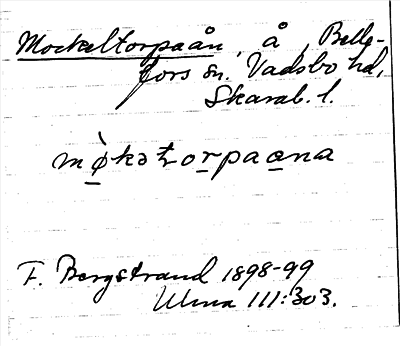 Mockeltorpaån, å, Belle-
fors sn. Vadsbo hd,
Skarab. l.
mø̀kətorpaana
F. Bergstrand 1898-99
Ulma 111:303.